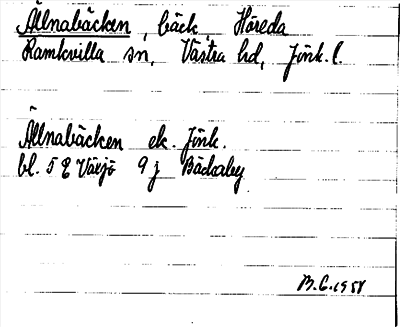 Ällnabäcken, bäck, Häreda
Ramkvilla sn, Västra hd, Jönk. l.
Ällnabäcken ek. Jönk.
bl. 5 E Växjö 9 j Bäckaby
B.G. 1958